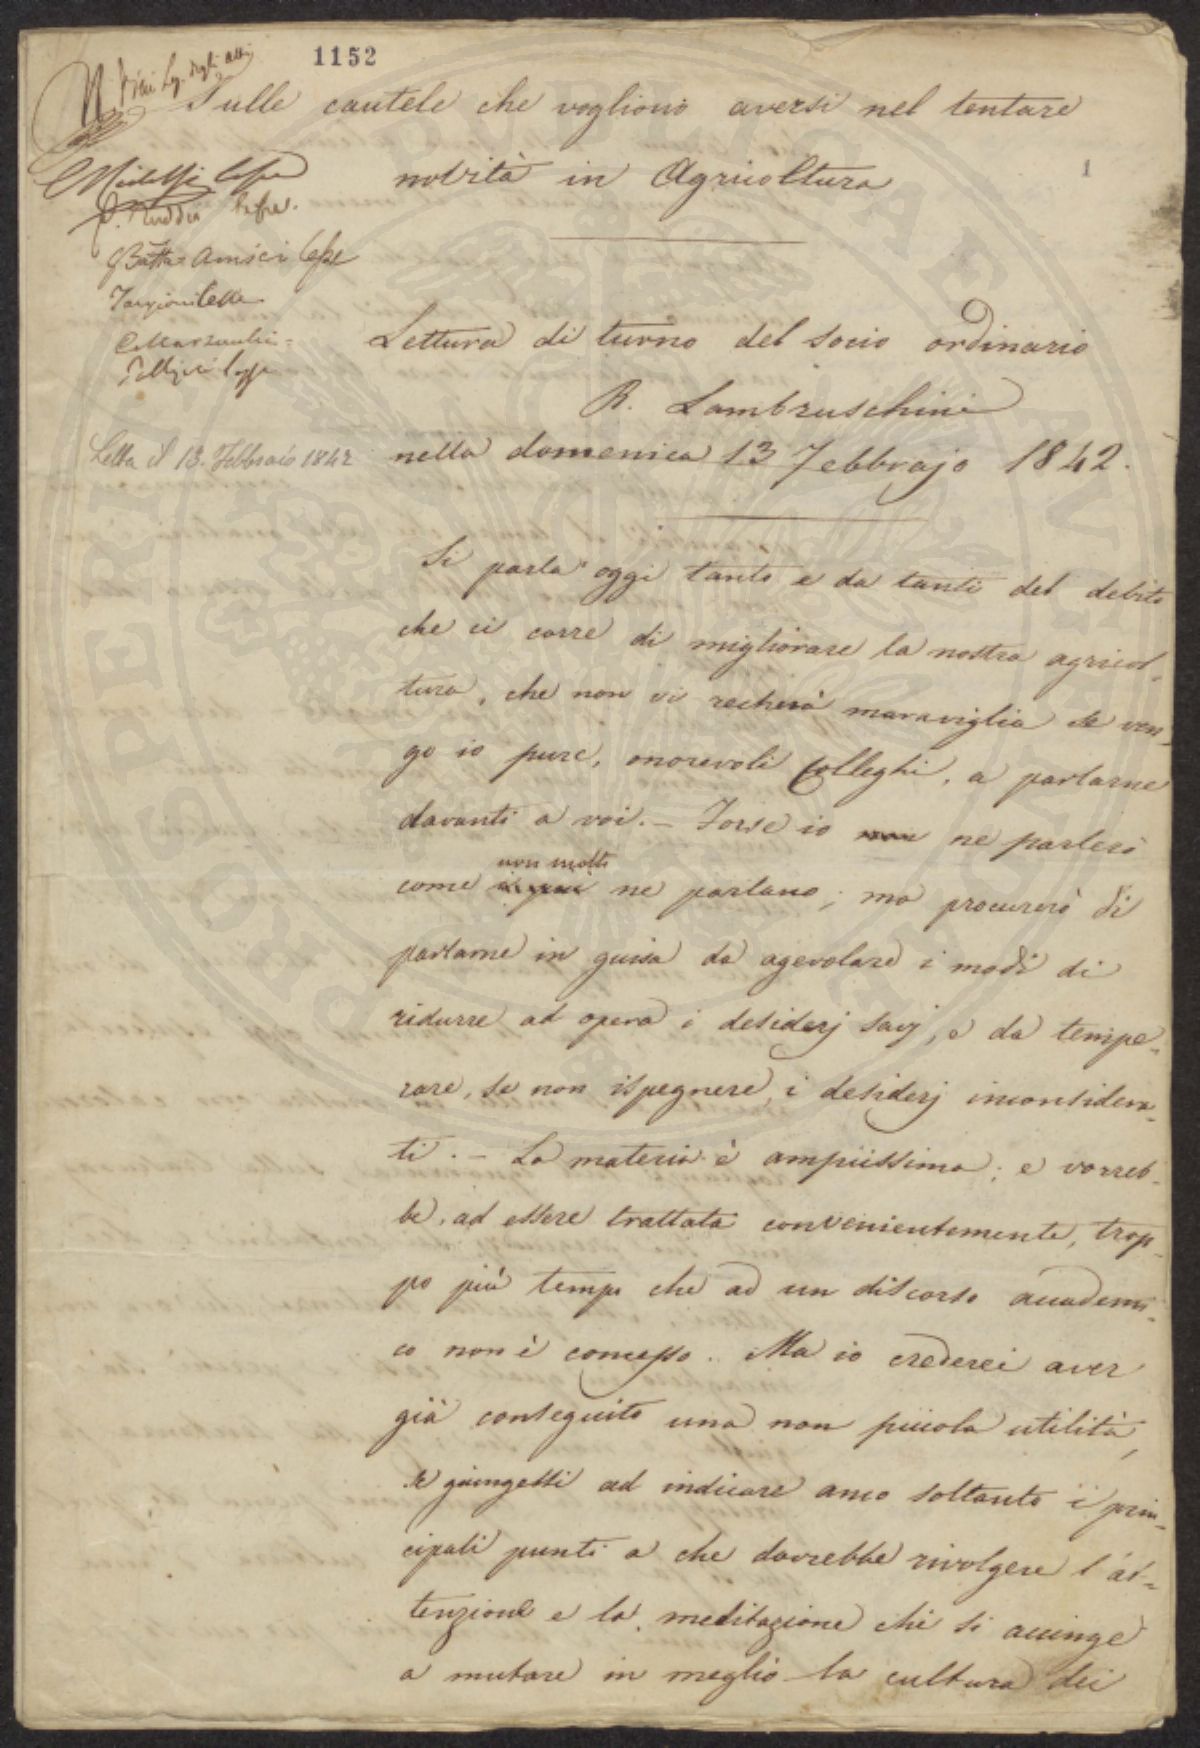 1152
Sulle cautele che vogliono aversi nel tentare
novità in Agricoltura
1
Lettura di turno del socio ordinario
R. Lambruschini
nella domenica 13 Febbrajo 1842.
Letta il 13. Febbraio 1842
Si parla oggi tanto e da tanti del debito
che ci corre di migliorare la nostra agricol-
tura, che non vi recherà maraviglia se ven-
go io pure, onorevoli Colleghi, a parlarne
davanti a voi. – Forse io non ne parlerò
non molti
come ne parlano; ma procurerò di
parlarne in guisa da agevolare i modi di
ridurre ad opera i desiderj savj, e da tempe-
rare, se non ispegnere, i desiderj inconsidera-
ti. – La materia è ampiissima; e vorreb-
be, ad essere trattata convenientemente, trop-
po più tempo che ad un discorso accademi-
co non è concesso. Ma io crederei aver
già conseguito una non piccola utilità,
se giungessi ad indicare anco soltanto i prin-
cipali punti a che dovrebbe rivolgere l'at-
tenzione e la meditazione chi si accinge
a mutare in meglio la cultura dei